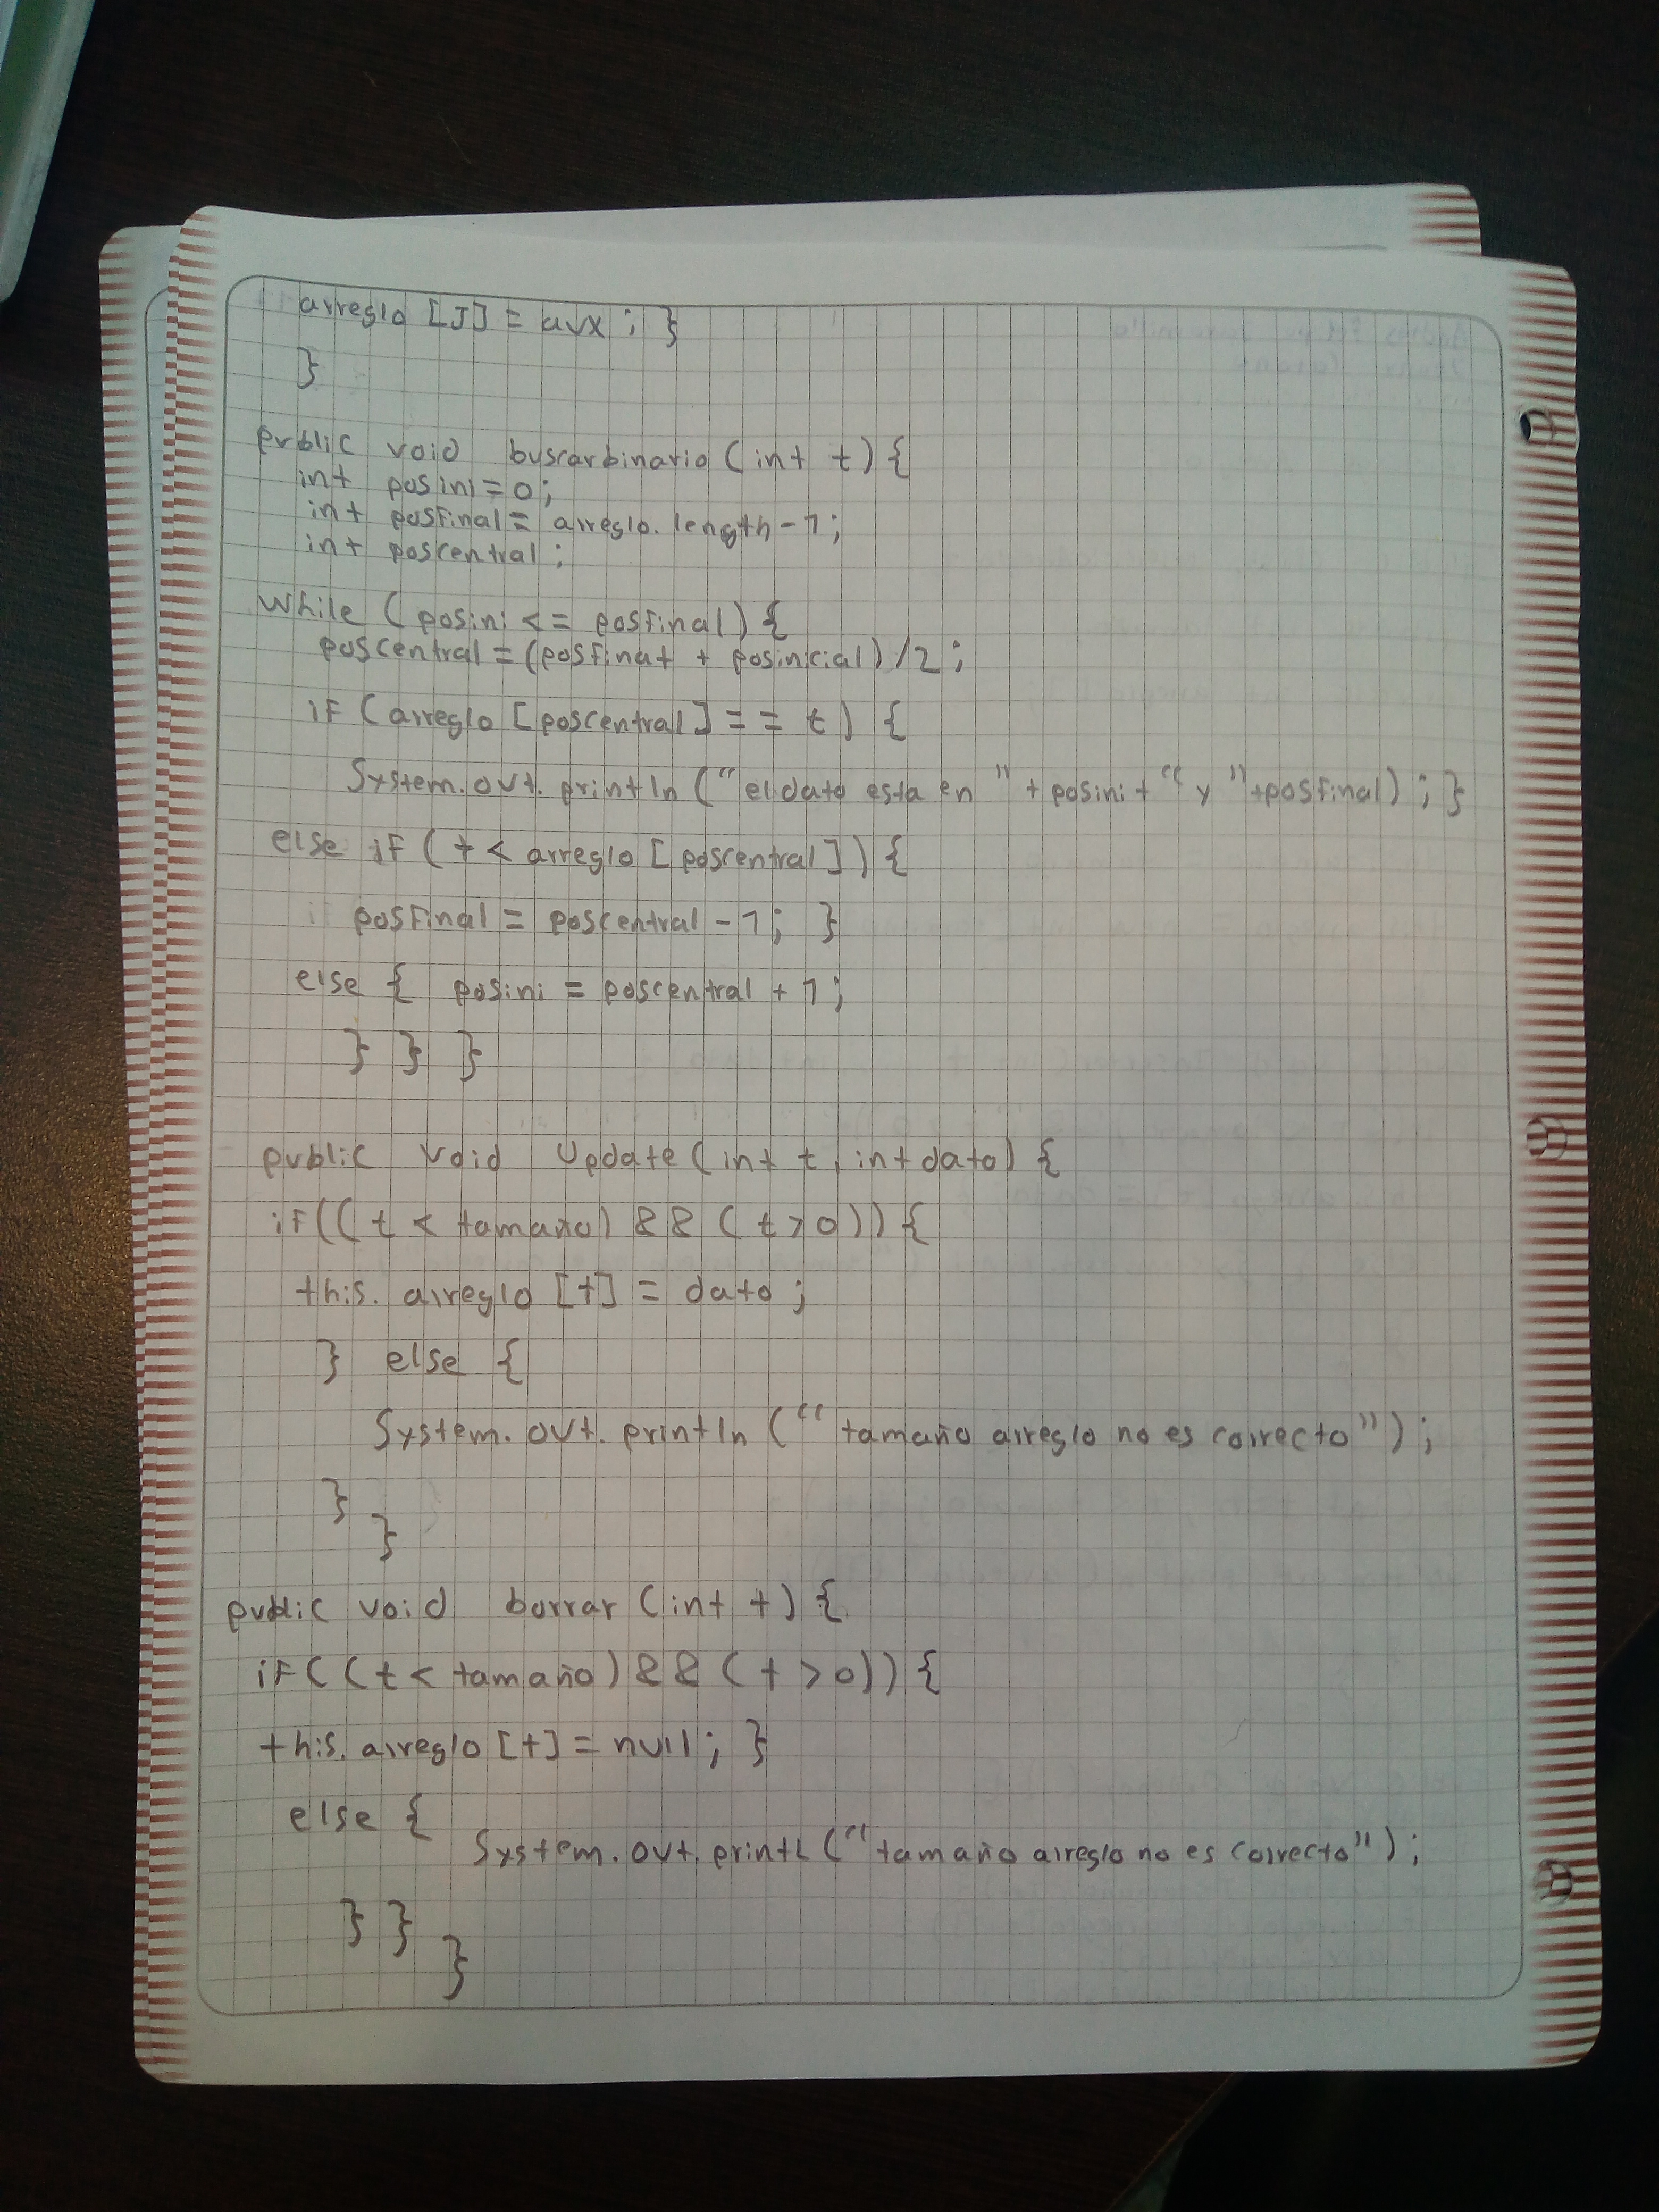 arreglo [J] = aux ; }
}
public void buscarbinario ( int t ) {
int posini = 0 ;
int posfinal = arreglo. length - 1 ;
int poscentral ;
While ( posini <= posfinal ) {
poscentral = (posfinat + posinicial) /2 ;
if ( arreglo [ poscentral ] = = t ) {
System. out. println ( " el dato esta en " + posini + " y " + posfinal ) ; }
else if ( t < arreglo [ poscentral ] ) {
posfinal = poscentral - 1 ; }
else { posini = poscentral + 1 ;
} } }
public void Update ( int t , int dato ) {
if ( ( t < tamaño ) && ( t > 0 ) ) {
this. arreglo [t] = dato ;
} else {
System. out. println ( " tamaño arreglo no es correcto " ) ;
}
}
public void borrar ( int t ) {
if ( ( t < tamaño ) && ( t > 0 ) ) {
this. arreglo [t] = null ; }
else {
System. out. printl ( " tamaño arreglo no es correcto " ) ;
} }
}